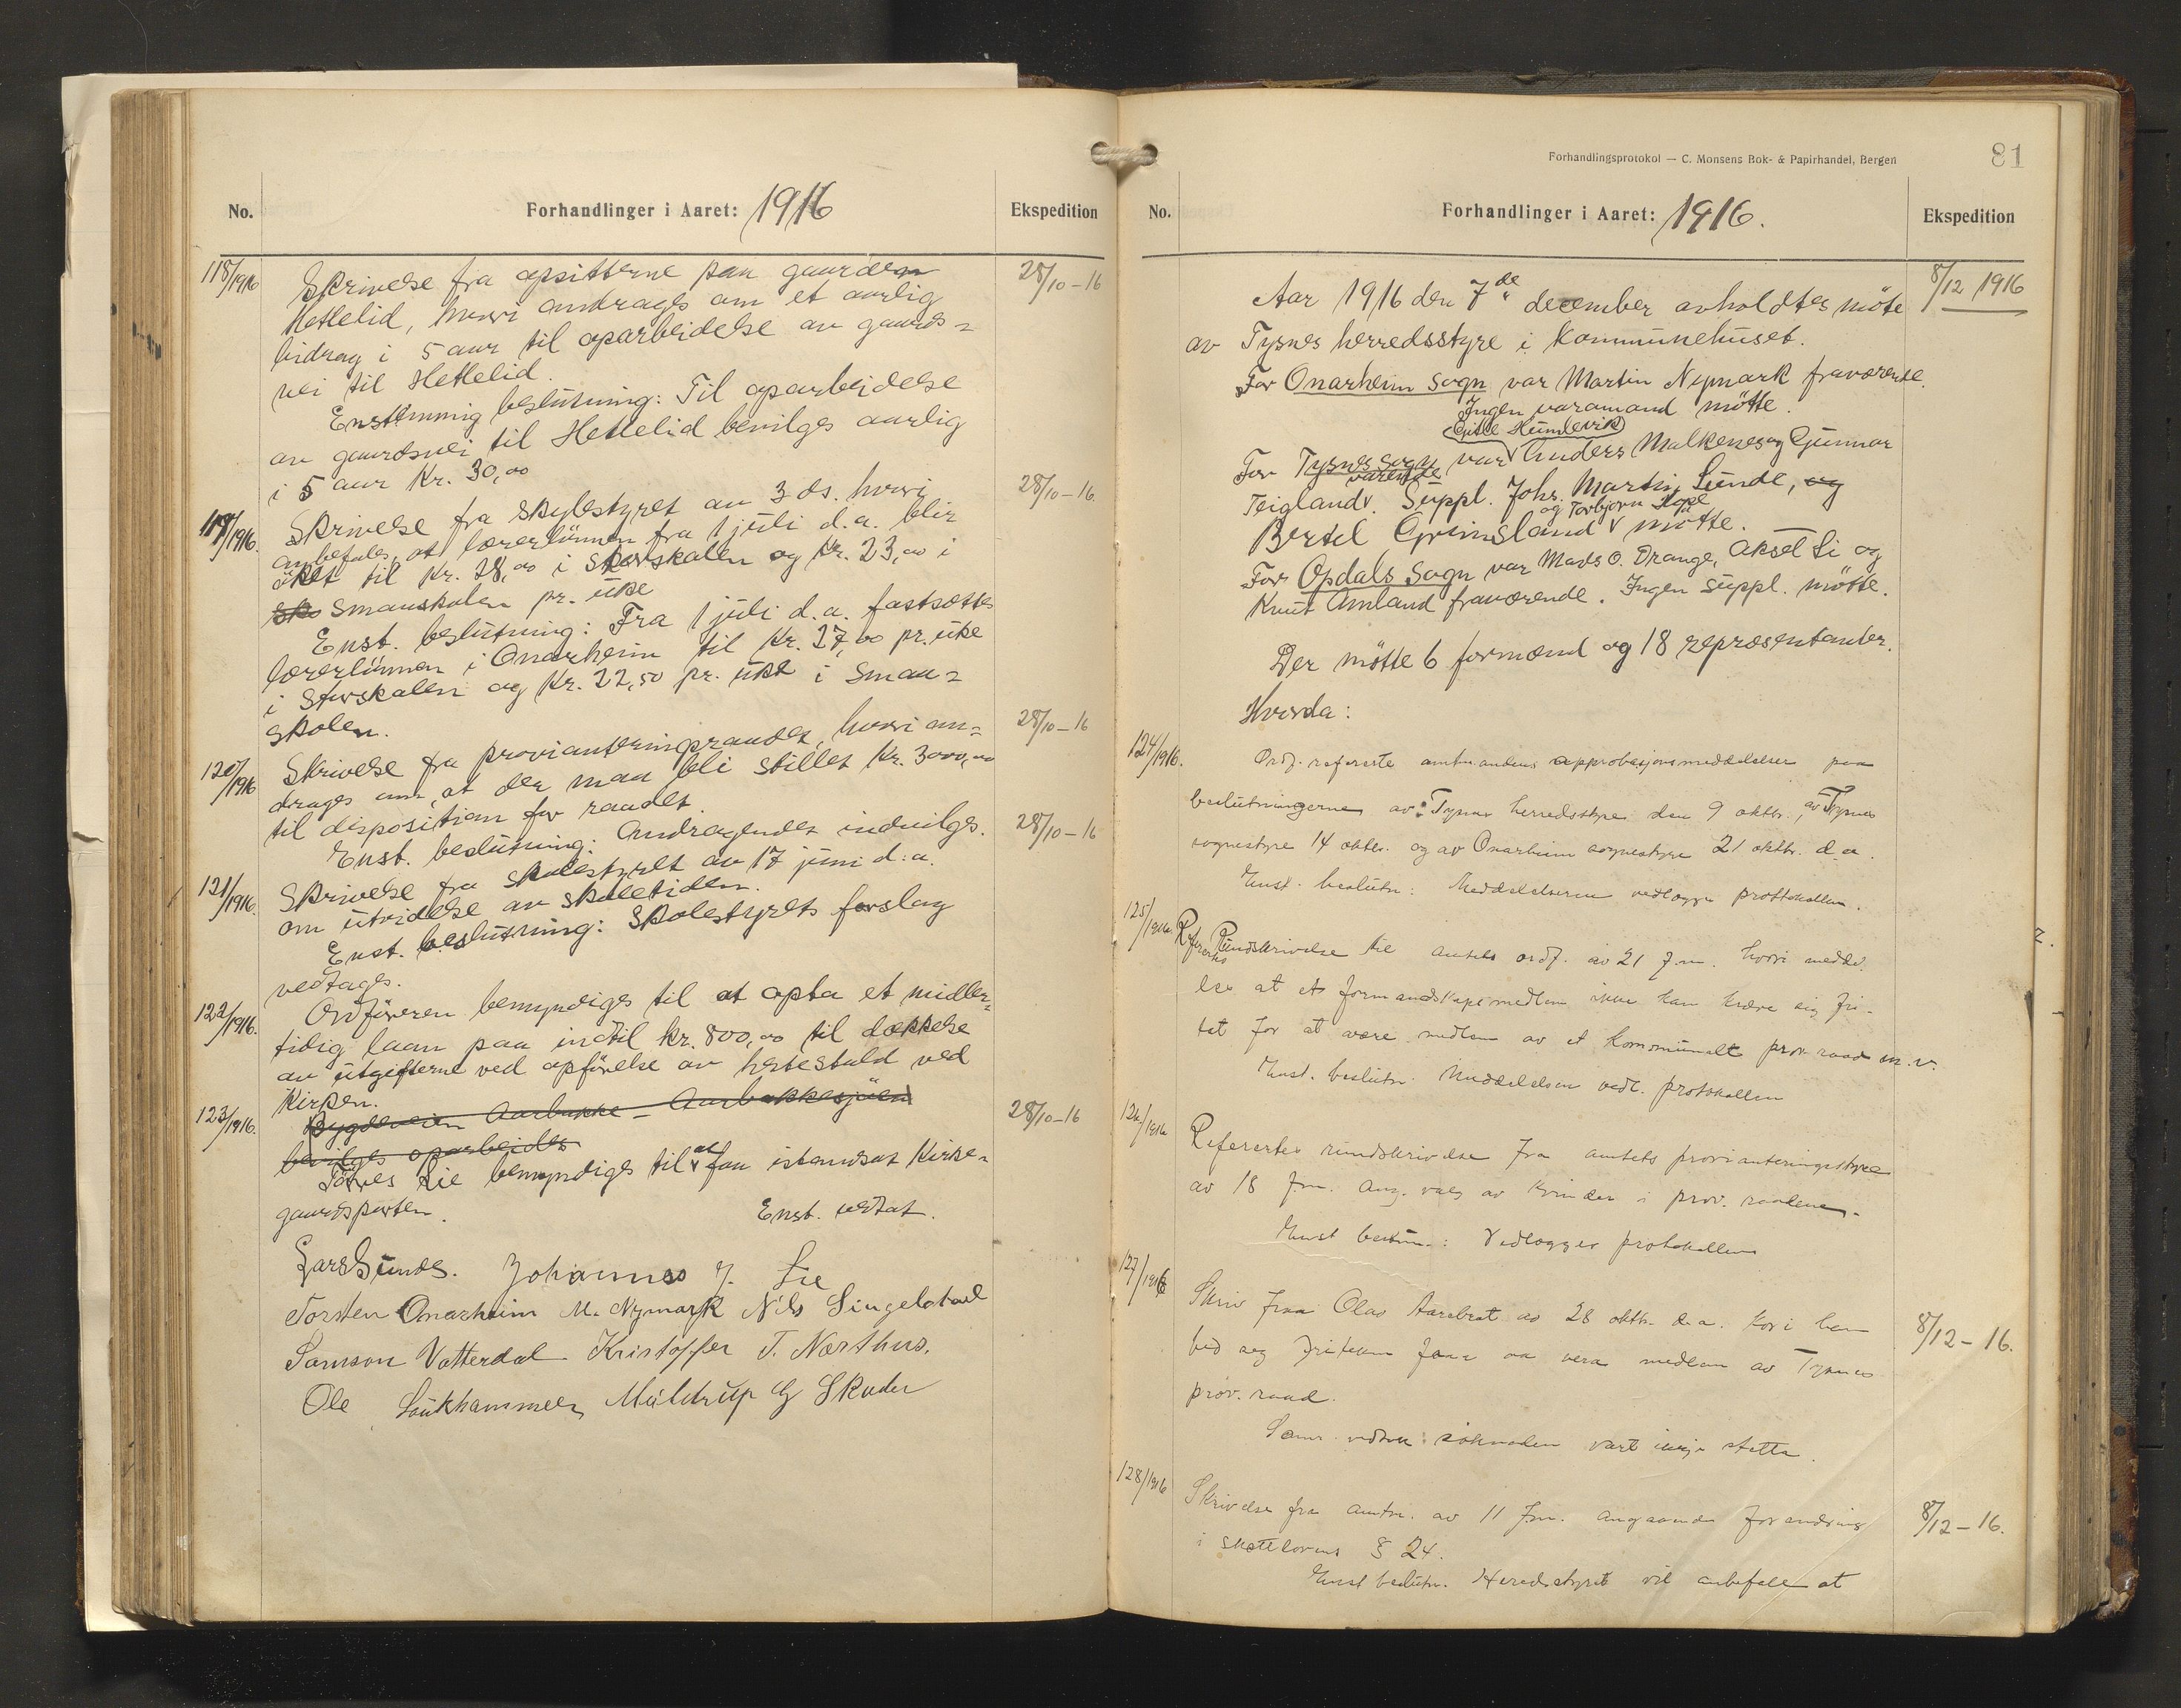 No.
Forhandlinger i Aaret: 1916
Ekspedition
118/1916
Skrivelse fra opsitterne paa gaarden
28/10-16
Hetlelid, hvori andrages om et aarlig
bidrag i 5 aar til oparbeidelse av gaards=
vei til Hetlelid.
Enstemmig beslutning: Til oparbeidelse
av gaardsvei til Hetlelid bevilges aarlig
i 5 aar Kr. 30,00
119/1916.
Skrivelse fra skolestyret av 3 ds. hvori
28/10-16.
anbefales, at lærerlönnen fra 1 juli d.a. blir
öket til Kr. 28,00 i storskolen og Kr. 23,00 i
sko smaaskolen pr. uke
Enst. beslutning: Fra 1 juli d.a. fastsættes
lærerlönnen i Onarheim til Kr. 27,00 pr. uke
i storskolen og Kr. 22,50 pr. uke i smaa=
skolen.
120/1916
Skrivelse fra provianteringsraadet, hvori an=
28/10-16
drages om, at der maa bli stillet Kr. 3000,00
til disposition for raadet.
Enst. beslutning: Andragendet indvilges.
28/10-16
121/1916.
Skrivelse fra skolestyret av 17 juni d.a.
om utvidelse av skoletiden.
Enst. beslutning: Skolestyrets forslag
vedtages.
122/1916.
Ordföreren bemyndiges til at opta et midler=
tidig laan paa indtil kr. 800,00 til dækkelse
av utgifterne ved opförelse av hestestald ved
Kirken.
123/1916.
Bygdeveien Aarbakke - Aarbakkesjöen
28/10-16
bevilges oparbeidet
Törres Lie bemyndiges til at faa istandsat Kirke=
gaardsporten.
Enst. vedtat.
Lars Sunde. Johannes J. Lie
Torsten Onarheim M. Nymark Nils Singelstad
Samson Vatterdal Kristoffer T. Nørthus.
Ole Laukhammer, Måldrup G Skader
Forhandlingsprotokol — C. Monsens Bok- & Papirhandel, Bergen
81
No.
Forhandlinger i Aaret: 1916.
Ekspedition
Aar 1916 den 7de december avholdtes möte
8/12 1916
av Tysnes herredsstyre i Kommunehuset.
For Onarheim sogn var Martin Nymark fraværende.
Ingen varamand mötte.
Gitle Heimlevik
For Tysnes sogn var Anders Malkenes og Gunnar
Teigland. Suppl. Johs. Martin Sunde, og
og Torbjørn Hope
Bertel Grimsland mötte.
For Opdals Sogn var Mads O. Drange, Aksel Li og
Knut Amland fraværende. Ingen suppl. mötte.
Der mötte 6 formænd og 18 repræsentanter.
Hvorda:
124/1916.
Ordf. refererte amtmandens approbasjonsmeddelelser paa
beslutningerne av: Tysnes herredsstyre den 9 oktbr., av Tysnes
sognestyre 14 oktbr. og av Onarheim sognestyre 21 oktbr. d.a.
Enst. beslutn: Meddelelserne vedlægges prottokollen.
125/1916.
Refertes
Rundskrivelse til amtets ordf. av 21 f.m. hvori medde-
les at et formandskapsmedlem ikke kan kræve sig fri-
tat for at være medlem av et kommunalt prov. raad m.v.
Enst. beslutn. Meddelelsen vedl. protokollen
126/1916
Refertes rundskrivelse fra amtets provianteringsstyre
av 18 f.m. ang. valg av kvinder i prov. raadene.
Enst beslutn.: Vedlægges protokollen
127/1916
Skriv fraa Olav Aarebrot av 28 oktbr. d.a. kori han
8/12-16.
bed seg friteken fraa aa vera medlem av Tysnes
prov. raad.
Sams. vedtak: söknaden vart ikkje stetta.
128/1916
Skrivelse fra amtm. av 11 f.m. angaaende forandring
8/12-16.
i skattelovens § 24.
Enst beslutn. Heredsstyret vil anbefale at